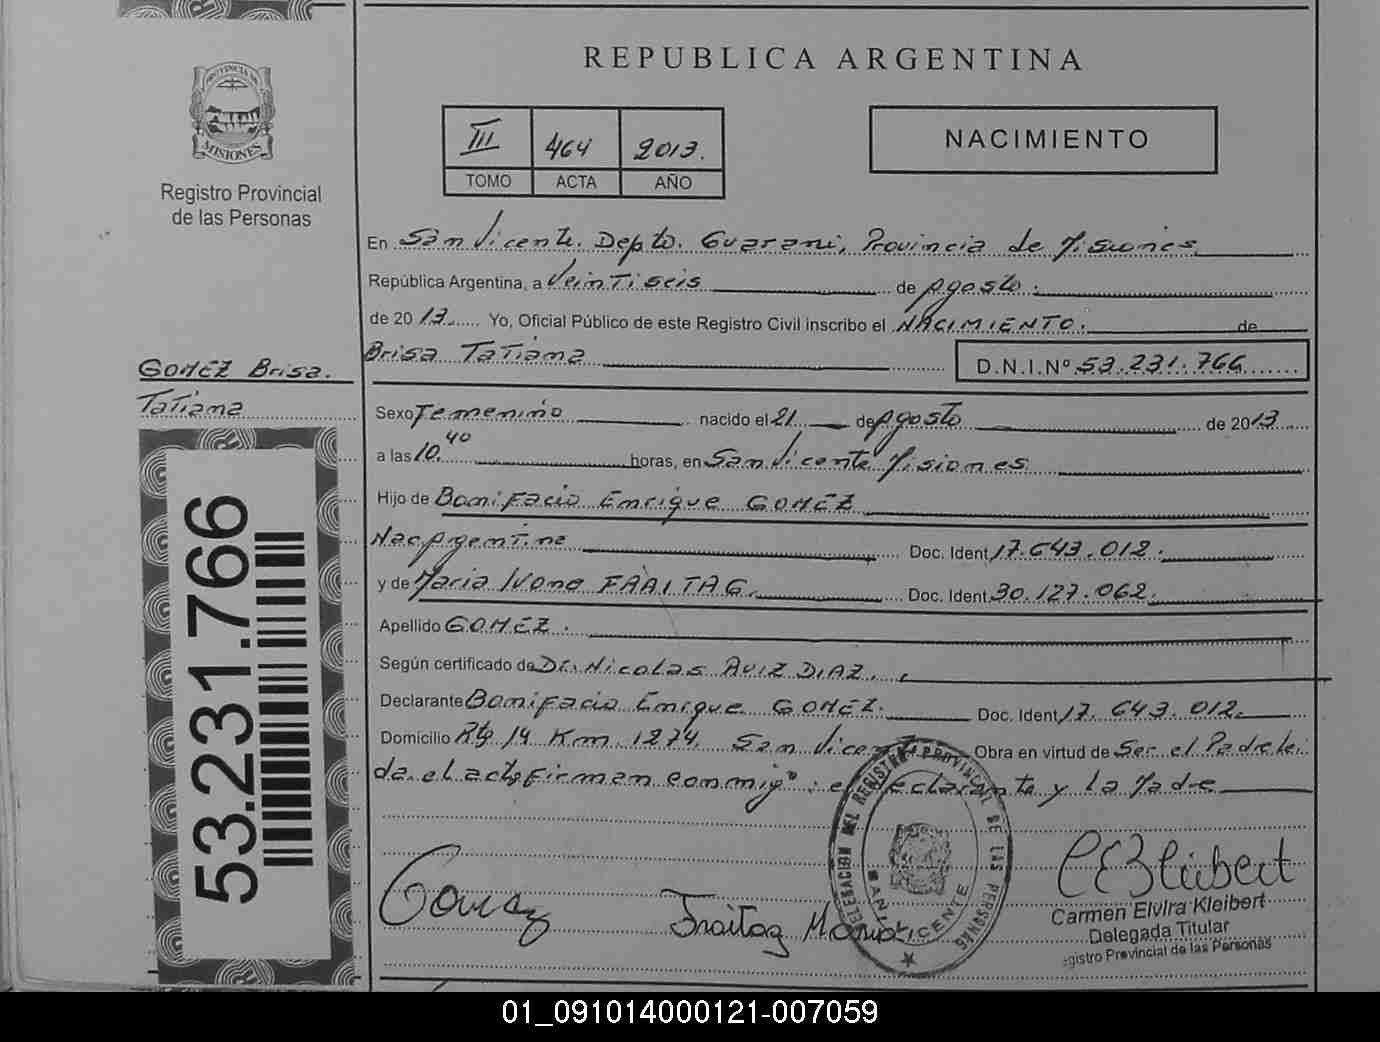 REPUBLICA ARGENTINA
PROVINCIA DE
MISIONES
Registro Provincial
de las Personas
III 464 2013.
TOMO ACTA AÑO
NACIMIENTO
En San Vicente. Depto. Guarani, Provincia de Misiones
República Argentina, a Veintiseis de Agosto.
de 2013 Yo, Oficial Público de este Registro Civil inscribo el NACIMIENTO. de
Brisa Tatiana D.N.I.Nº 53.231.766
GOMEZ Brisa.
Tatiana
Sexo Femenino nacido el 21 de Agosto de 2013
a las 10,40 horas, en San Vicente Misiones
Hijo de Bonifacio Enrique GOMEZ
Nac Argentina Doc. Ident. 17.643.012.
y de Maria Ivone FRAITAG. Doc. Ident. 30.127.062.
Apellido GOMEZ.
Según certificado de Dr. Nicolas RUIZ DIAZ.
Declarante Bonifacio Enrique GOMEZ. Doc. Ident. 17.643.012.
Domicilio Rta 14 Km 1274 San Vicente Obra en virtud de Ser el Padre lei
da el acta firman conmigo: el declarante y la Madre
53.231.766
DELEGACION DEL REGISTRO PROVINCIAL DE LAS PERSONAS
SAN VICENTE
Gomez
Fraitag Maria
CEKleibert
Carmen Elvira Kleibert
Delegada Titular
egistro Provincial de las Personas
01_091014000121-007059